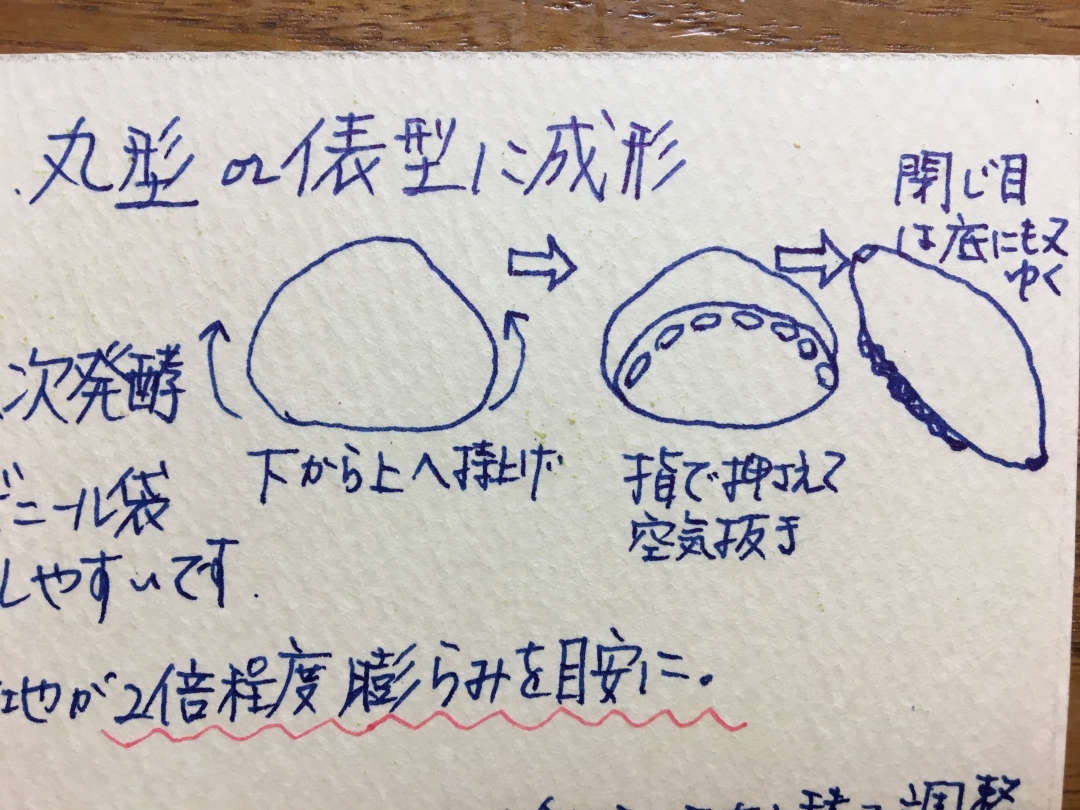 .丸型 or 俵型に成形
閉じ目
は底にもって
ゆく
次発酵
下から上へ持上げ
指で押さえて
空気抜き
ビニール袋
しやすいです.
生地が2倍程度膨らみを目安に。
調整